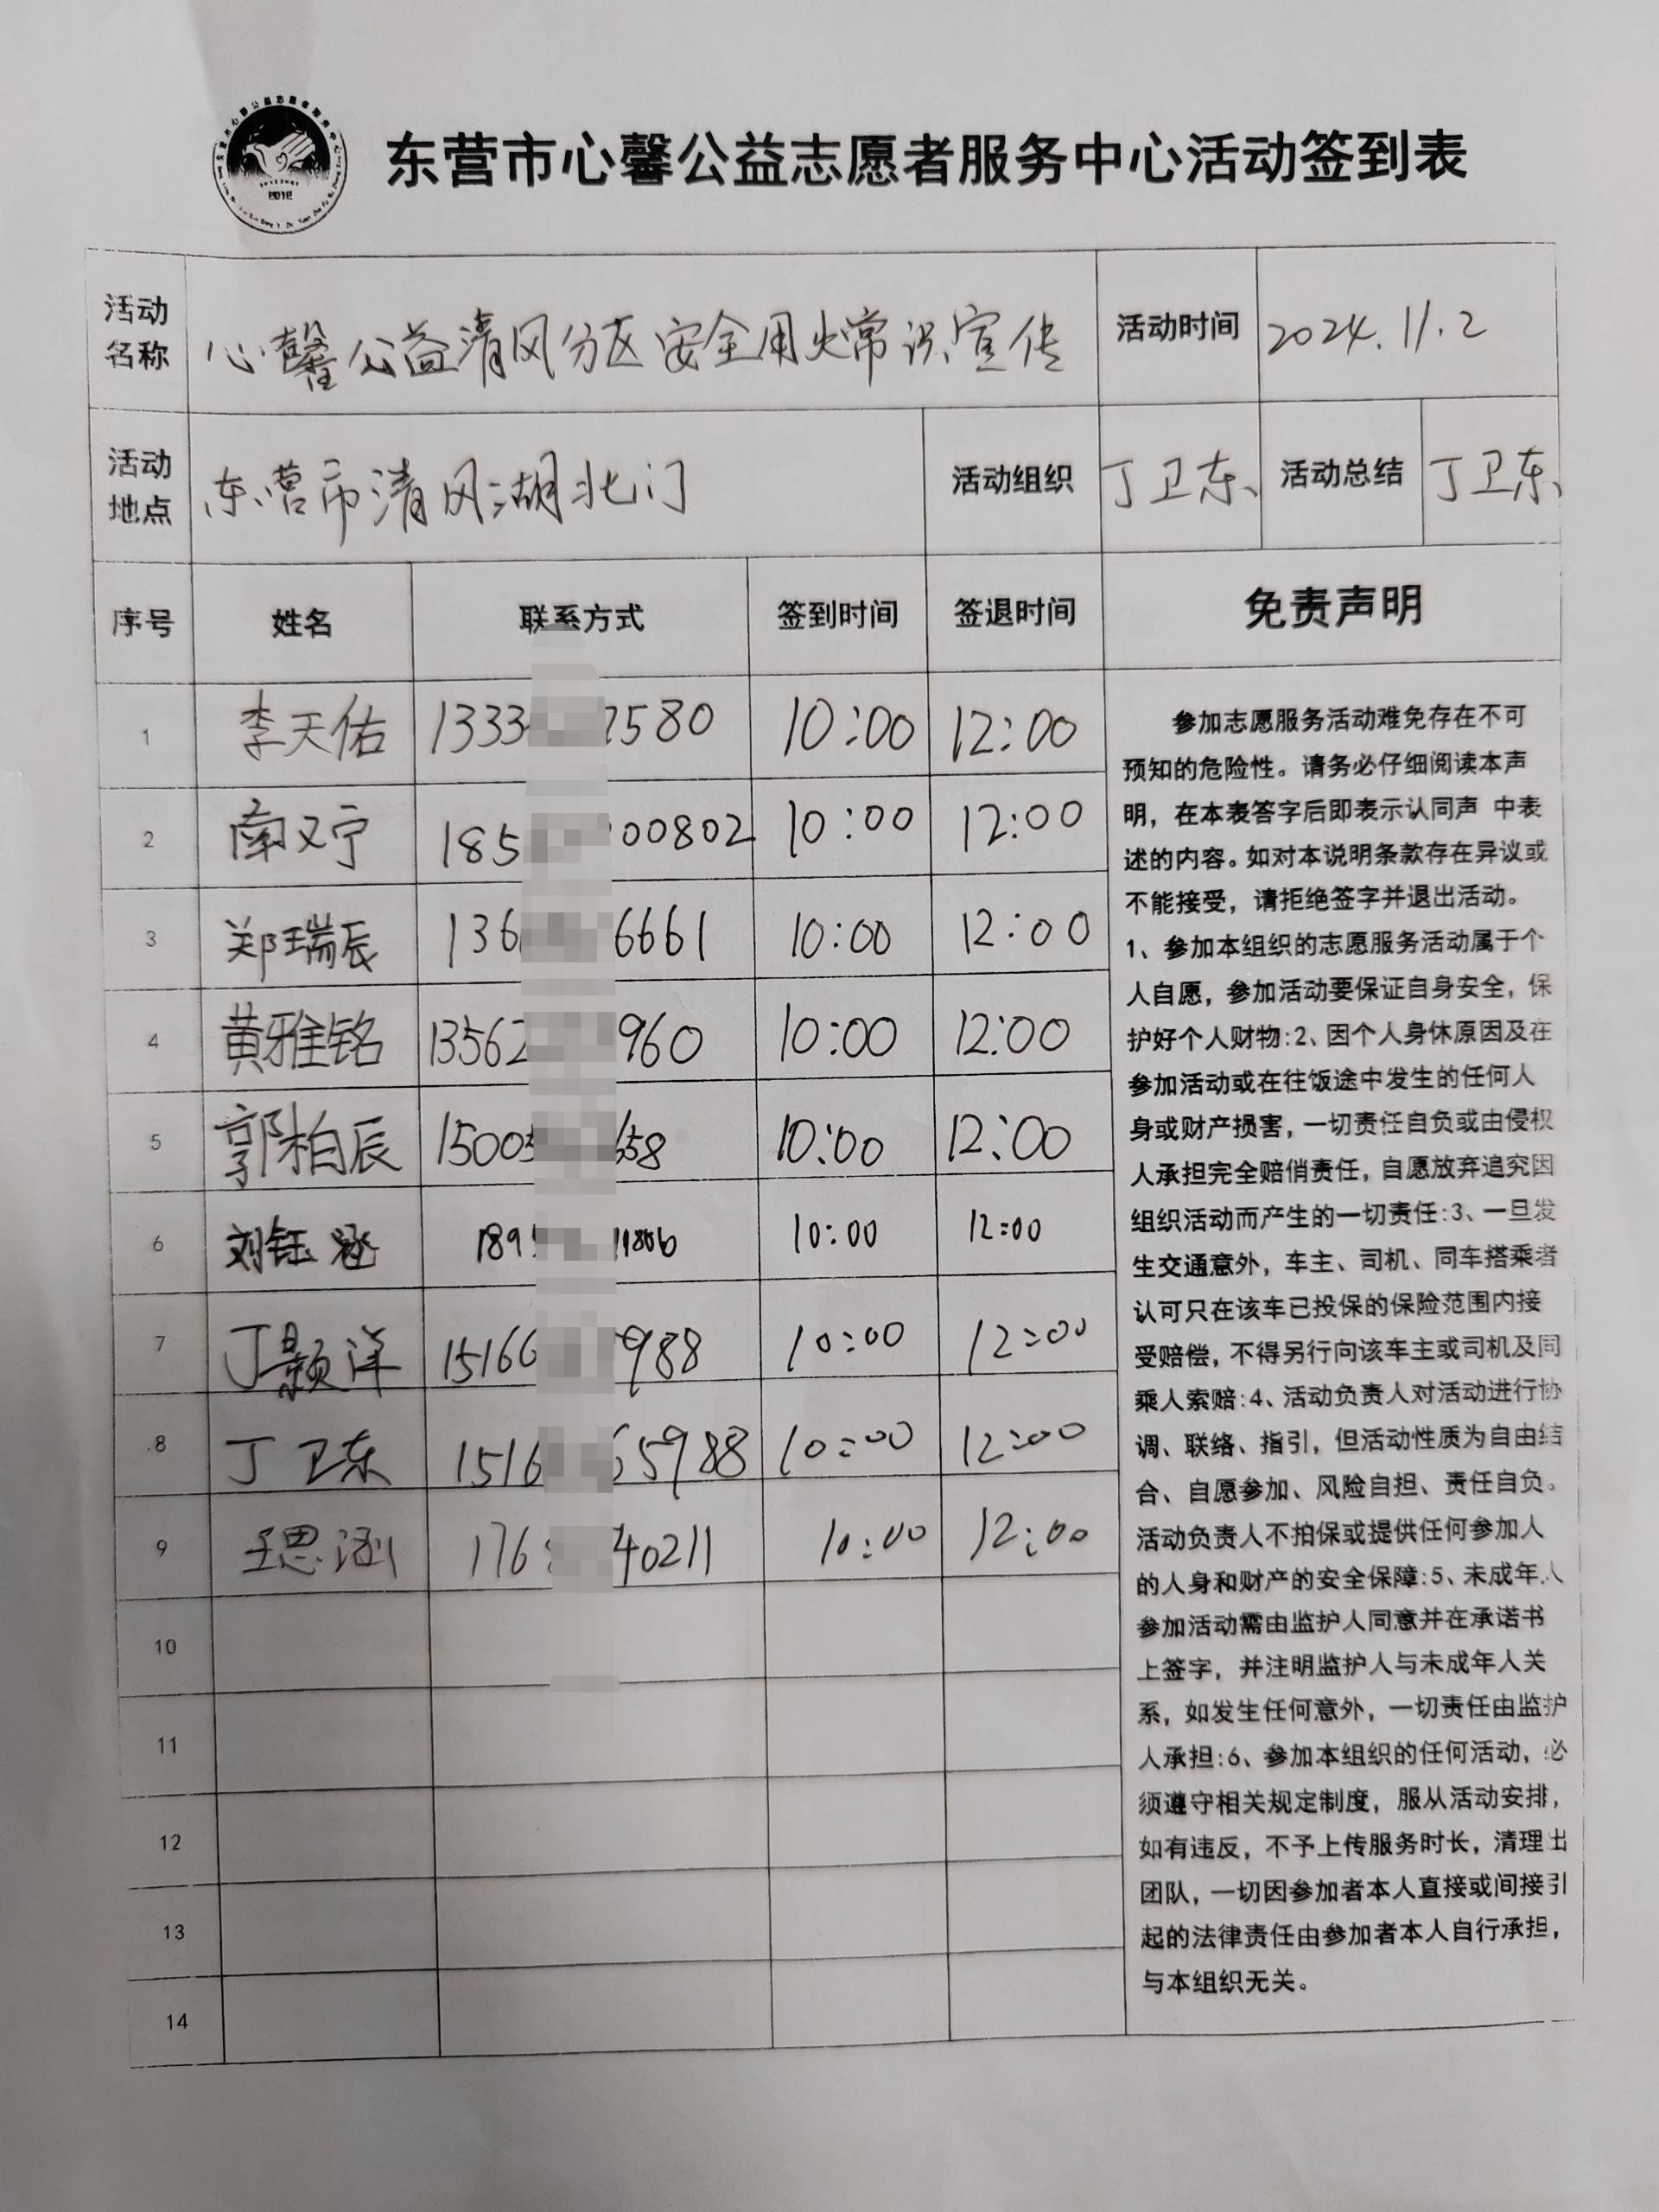 东营市心馨公益志愿者服务中心活动签到表
2012
活动名称 心馨公益清风分区安全用火常识宣传 活动时间 2024.11.2
活动地点 东营市清风湖北门 活动组织 丁卫东 活动总结 丁卫东
序号 姓名 联系方式 签到时间 签退时间 免责声明
1 李天佑 1333 2580 10:00 12:00
2 南又宁 185 00802 10:00 12:00
3 郑瑞辰 136 6661 10:00 12:00
4 黄雅铭 13562 960 10:00 12:00
5 郭柏辰 15005 658 10:00 12:00
6 刘钰涵 189 11806 10:00 12:00
7 丁颢洋 15166 988 10:00 12:00
8 丁卫东 1516 65988 10:00 12:00
9 王思涵 176 40211 10:00 12:00
10
11
12
13
14
参加志愿服务活动难免存在不可
预知的危险性。请务必仔细阅读本声
明，在本表答字后即表示认同声 中表
述的内容。如对本说明条款存在异议或
不能接受，请拒绝签字并退出活动。
1、参加本组织的志愿服务活动属于个
人自愿，参加活动要保证自身安全，保
护好个人财物:2、因个人身休原因及在
参加活动或在往饭途中发生的任何人
身或财产损害，一切责任自负或由侵权
人承担完全赔俏责任，自愿放弃追究因
组织活动而产生的一切责任:3、一旦发
生交通意外，车主、司机、同车搭乘者
认可只在该车已投保的保险范围内接
受赔偿，不得另行向该车主或司机及同
乘人索赔:4、活动负责人对活动进行协
调、联络、指引，但活动性质为自由结
合、自愿参加、风险自担、责任自负。
活动负责人不拍保或提供任何参加人
的人身和财产的安全保障:5、未成年人
参加活动需由监护人同意并在承诺书
上签字，并注明监护人与未成年人关
系，如发生任何意外，一切责任由监护
人承担:6、参加本组织的任何活动，必
须遵守相关规定制度，服从活动安排，
如有违反，不予上传服务时长，清理出
团队，一切因参加者本人直接或间接引
起的法律责任由参加者本人自行承担，
与本组织无关。